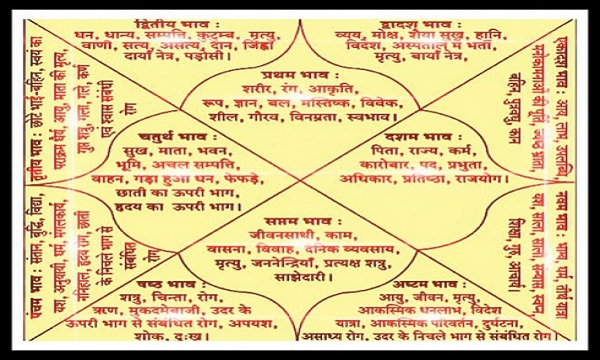 द्वितीय भाव :
धन, धान्य, सम्पत्ति, कुटुम्ब, मृत्यु,
वाणी, सत्य, असत्य, दान, जिह्वा
दायाँ नेत्र, पड़ोसी।
द्वादश भाव :
व्यय, मोक्ष, शैया सुख, हानि,
विदेश, अस्पताल में भर्ती,
मृत्यु, बायाँ नेत्र
प्रथम भाव :
शरीर, रंग, आकृति,
रूप, ज्ञान, बल, मस्तिष्क, विवेक,
शील, गौरव, विनम्रता, स्वभाव।
तृतीय भाव : छोटे भाई-बहिन, स्वयं का
पराक्रम धैर्य, आयु, माता की मृत्यु,
गुप्त शत्रु, गला, गले, कर्ण
एवं श्वास संबंधी
रोग
एकादश भाव : आय, लाभ, उपलब्धि
मनोकामनाओं की पूर्ति, ज्येष्ठ भ्राता,
बहिन, पुत्रवधु, कान
चतुर्थ भाव :
सुख, माता, भवन,
भूमि, अचल सम्पत्ति,
वाहन, गड़ा हुआ धन, फेफड़े,
छाती का ऊपरी भाग,
हृदय का ऊपरी भाग।
दशम भाव :
पिता, राज्य, कर्म,
कारोबार, पद, प्रभुता,
अधिकार, प्रतिष्ठा, राजयोग।
पंचम भाव : संतान, बुद्धि, विद्या,
यश, धर्म, मंगलकार्य,
ननिहाल, हृदय रोग, छाती
के निचले भाग से
संबंधित
रोग,
नवम भाव : भाग्य, धर्म, तीर्थ यात्रा
यश, साला, साली, संन्यास,
शिक्षा, गुरु, आचार्य।
सप्तम भाव :
जीवनसाथी, काम,
वासना, विवाह, दैनिक व्यवसाय,
मृत्यु, जननेन्द्रियाँ, प्रत्यक्ष शत्रु,
साझेदारी।
षष्ठ भाव :
शत्रु, चिन्ता, रोग,
ऋण, मुकदमेबाजी, उदर के
ऊपरी भाग से संबंधित रोग, अपयश,
शोक, दुःख।
अष्टम भाव :
आयु, जीवन, मृत्यु,
आकस्मिक धनलाभ, विदेश
यात्रा, आकस्मिक परिवर्तन, दुर्घटना,
असाध्य रोग, उदर के निचले भाग से संबंधित रोग।